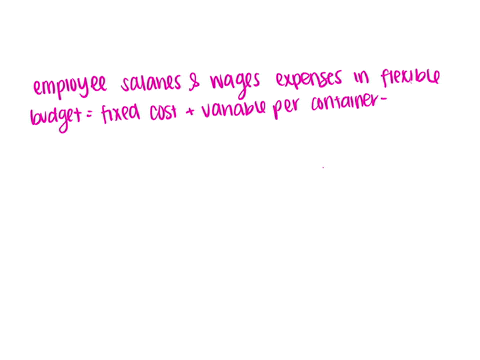 employee salaries & wages expenses in flexible
budget = fixed cost + variable per container-